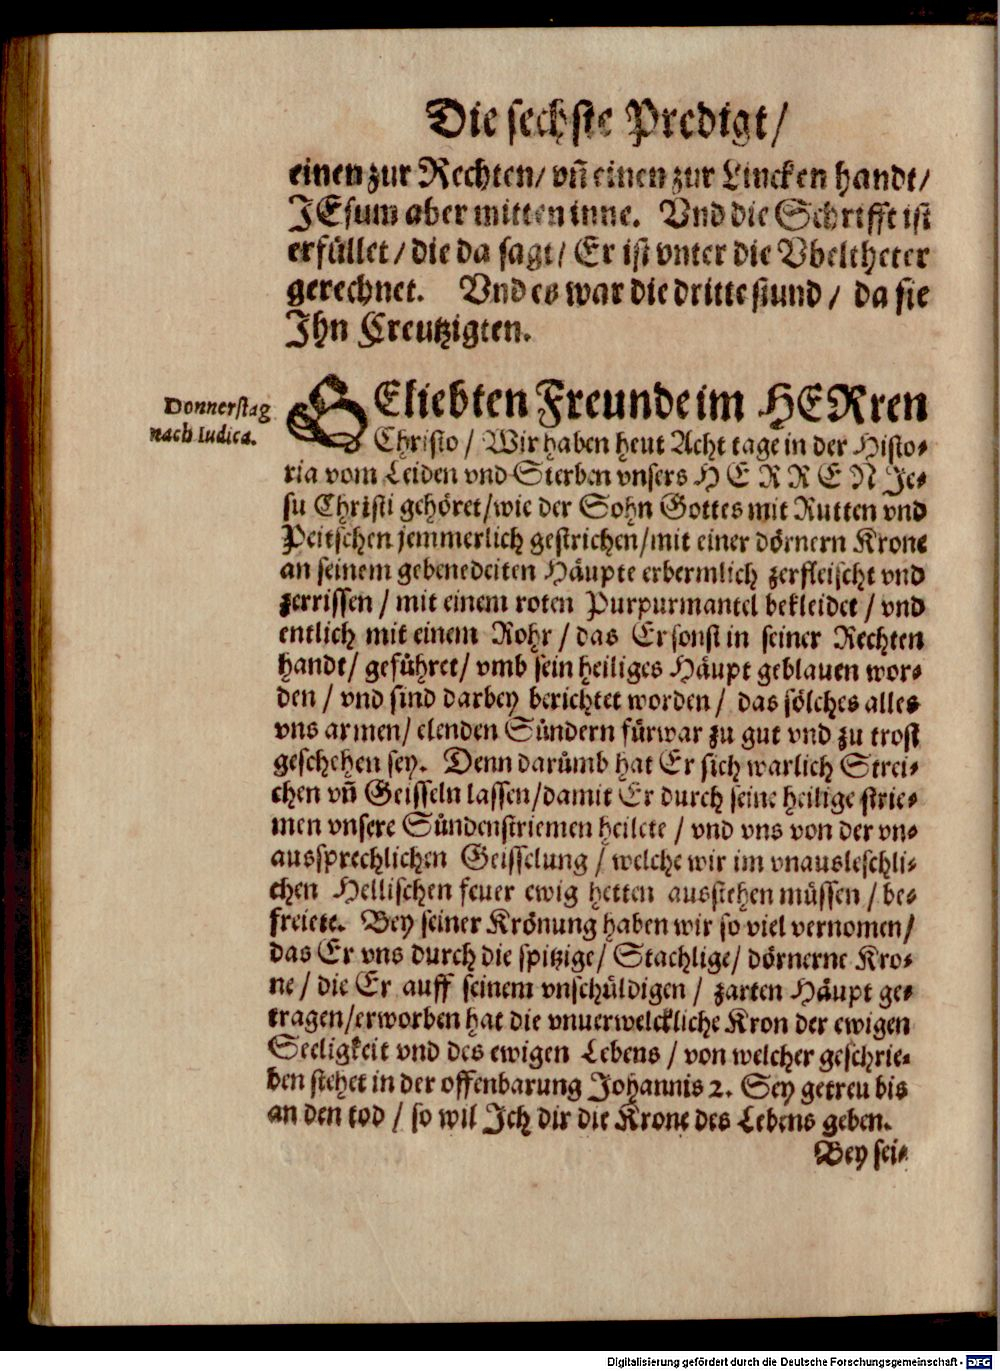 Die sechste Predigt/
einen zur Rechten/ vñ einen zur Lincken handt/
JEsum aber mitten inne. Vnd die Schrifft ist
erfüllet/ die da sagt/ Er ist vnter die Vbeltheter
gerechnet. Vnd es war die dritte stund/ da sie
Jhn Creutzigten.
Donnerstag
nach Iudica.
GEliebten Freunde im HERren
Christo/ Wir haben heut Acht tage in der Histo-
ria vom Leiden vnd Sterben vnsers HERREN Je-
su Christi gehöret/wie der Sohn Gottes mit Rutten vnd
Peitschen jemmerlich gestrichen/mit einer dörnern Krone
an seinem gebenedeiten Häupte erbermlich zerfleischt vnd
zerrissen/ mit einem roten Purpurmantel bekleidet/ vnd
entlich mit einem Rohr/ das Er sonst in seiner Rechten
handt/ geführet/ vmb sein heiliges Häupt geblauen wor-
den/ vnd sind darbey berichtet worden/ das sölches alles
vns armen/ elenden Sündern fürwar zu gut vnd zu trost
geschehen sey. Denn darümb hat Er sich warlich Strei-
chen vñ Geisseln lassen/damit Er durch seine heilige strie-
men vnsere Sündenstriemen heilete/ vnd vns von der vn-
aussprechlichen Geisselung/ welche wir im vnausleschli-
chen Hellischen feuer ewig hetten ausstehen müssen/ be-
freiete. Bey seiner Krönung haben wir so viel vernomen/
das Er vns durch die spitzige/ Stachlige/ dörnerne Kro-
ne/ die Er auff seinem vnschüldigen/ zarten Häupt ge-
tragen/erworben hat die vnuerwelckliche Kron der ewigen
Seeligkeit vnd des ewigen Lebens/ von welcher geschrie-
ben stehet in der offenbarung Johannis 2. Sey getreu bis
an den tod/ so wil Jch dir die Krone des Lebens geben.
Bey sei-
Digitalisierung gefördert durch die Deutsche Forschungsgemeinschaft - DFG